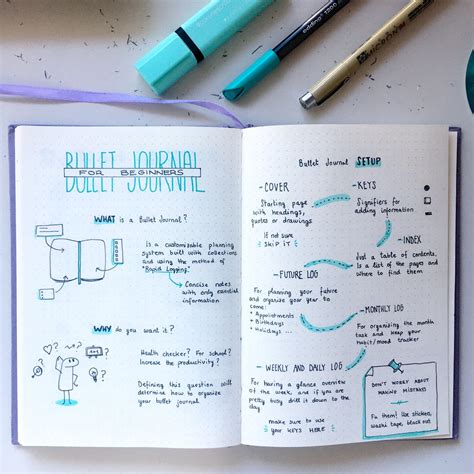 edding 1200
BULLET JOURNAL
FOR BEGINNERS
BULLET JOURNAL
WHAT is a Bullet Journal?
Is a customisable planning
system built with collections
and using the method of
"Rapid Logging"
Concise notes
with only essential
information
WHY do you want it?
Health checker? For school?
Increase the productivity?
Defining this question will
determine how to organize
your bullet journal
Bullet Journal SETUP
- COVER
Starting page
with headings,
quotes or drawings
If not sure
SKIP IT
- KEYS
Signifiers for
adding information
- INDEX
Just a table of contents,
Is a list of the pages and
where to find them
- FUTURE LOG
For planning your future
and organize your year to
come:
* Appointments
* Birthdays
* Holidays ...
- MONTHLY LOG
For organizing the month
task and keep your
habit/mood tracker
- WEEKLY AND DAILY LOG
For having a glance overview
of the week, and if you are
pretty busy drill it down to the
day
make sure to use
your KEYS HERE
DON'T WORRY ABOUT
MAKING MISTAKES
Fix them! like sticker,
washi tape, black out